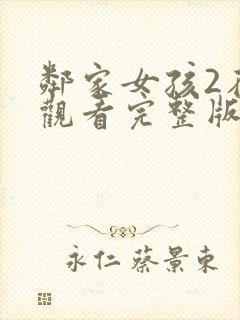 鄰家女孩2
觀看完整版
永仁蔡景東